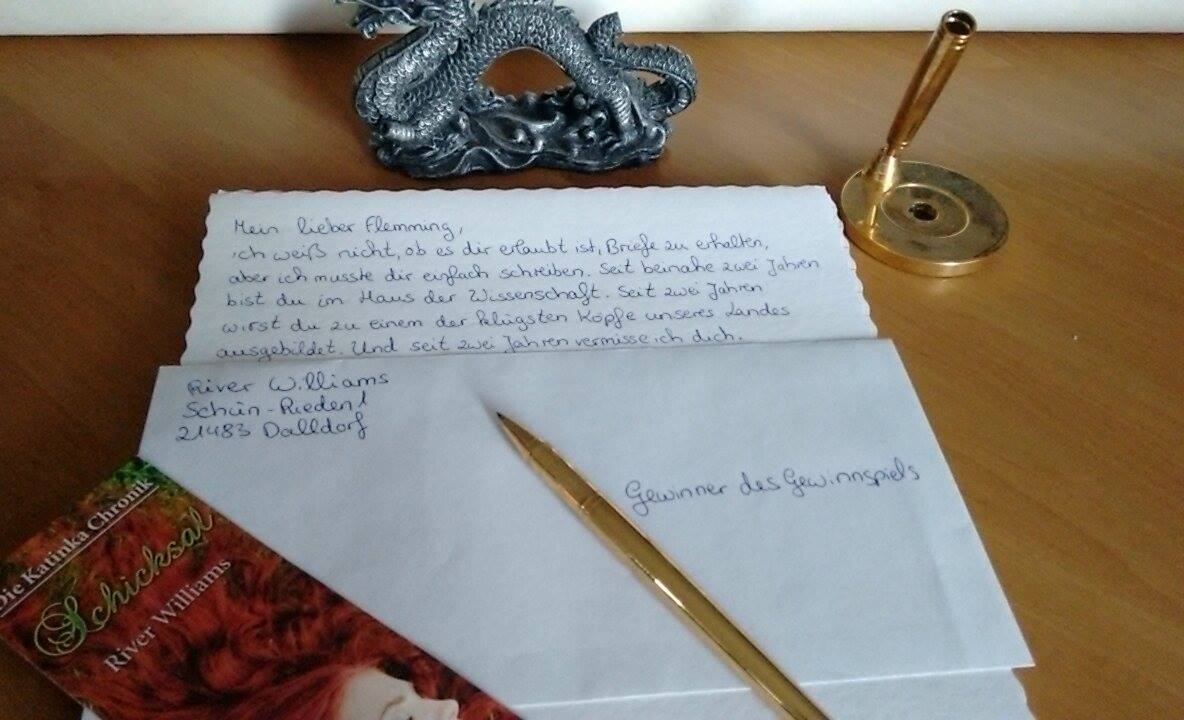 Mein lieber Flemming,
ich weiß nicht, ob es dir erlaubt ist, Briefe zu erhalten,
aber ich musste dir einfach schreiben. Seit beinahe zwei Jahren
bist du im Haus der Wissenschaft. Seit zwei Jahren
wirst du zu einem der klügsten Köpfe unseres Landes
ausgebildet. Und seit zwei Jahren vermisse ich dich.
River Williams
Schün-Rieden 1
21483 Dalldorf
Gewinner des Gewinnspiels
Die Katinka Chronik
Schicksal
River Williams